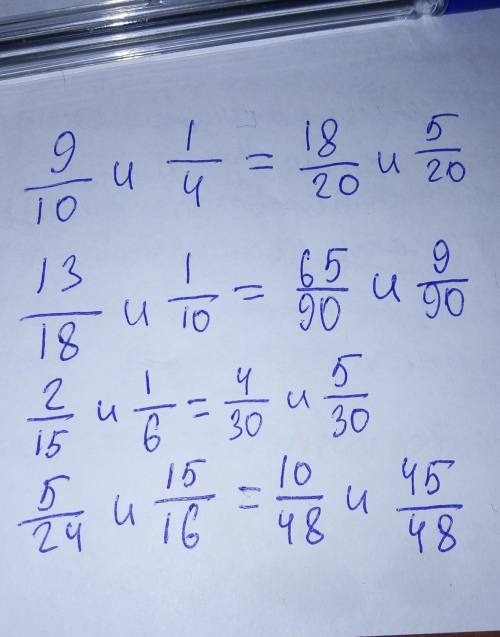 9/10 и 1/4 = 18/20 и 5/20
13/18 и 1/10 = 65/90 и 9/90
2/15 и 1/6 = 4/30 и 5/30
5/24 и 15/16 = 10/48 и 45/48